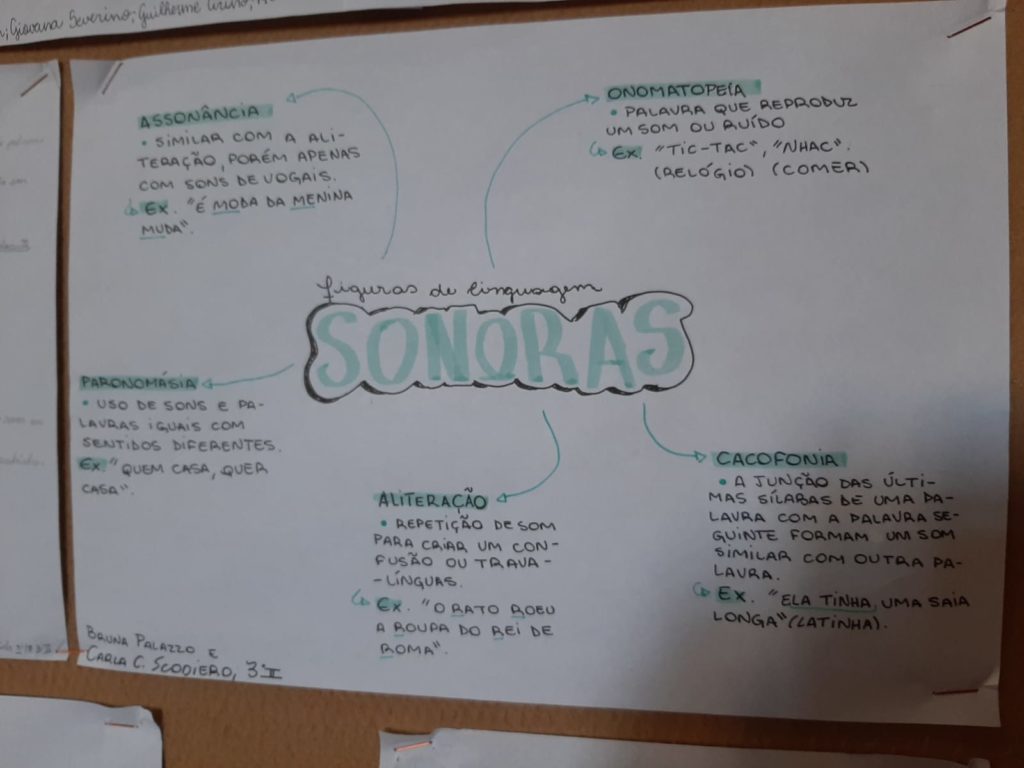 Giovana Severino; Guilherme
figuras de linguagem
SONORAS
ASSONÂNCIA
• SIMILAR COM A ALI-
TERAÇÃO, PORÉM APENAS
COM SONS DE VOGAIS.
Ex. "É MODA DA MENINA
MUDA".
ONOMATOPEÍA
• PALAVRA QUE REPRODUZ
UM SOM OU RUÍDO
Ex. "TIC-TAC", "NHAC".
(RELÓGIO) (COMER)
PARONOMÁSIA
• USO DE SONS E PA-
LAVRAS IGUAIS COM
SENTIDOS DIFERENTES.
Ex. "QUEM CASA, QUER
CASA".
ALITERAÇÃO
• REPETIÇÃO DE SOM
PARA CRIAR UM CON-
FUSÃO OU TRAVA-
-LÍNGUAS.
Ex. "O RATO ROEU
A ROUPA DO REI DE
ROMA".
CACOFONIA
• A JUNÇÃO DAS ÚLTI-
MAS SÍLABAS DE UMA PA-
LAVRA COM A PALAVRA SE-
GUINTE FORMAM UM SOM
SIMILAR COM OUTRA PA-
LAVRA.
Ex. "ELA TINHA, UMA SAIA
LONGA" (LATINHA).
BRUNA PALAZZO E
CARLA C. SCODIERO, 3ºI